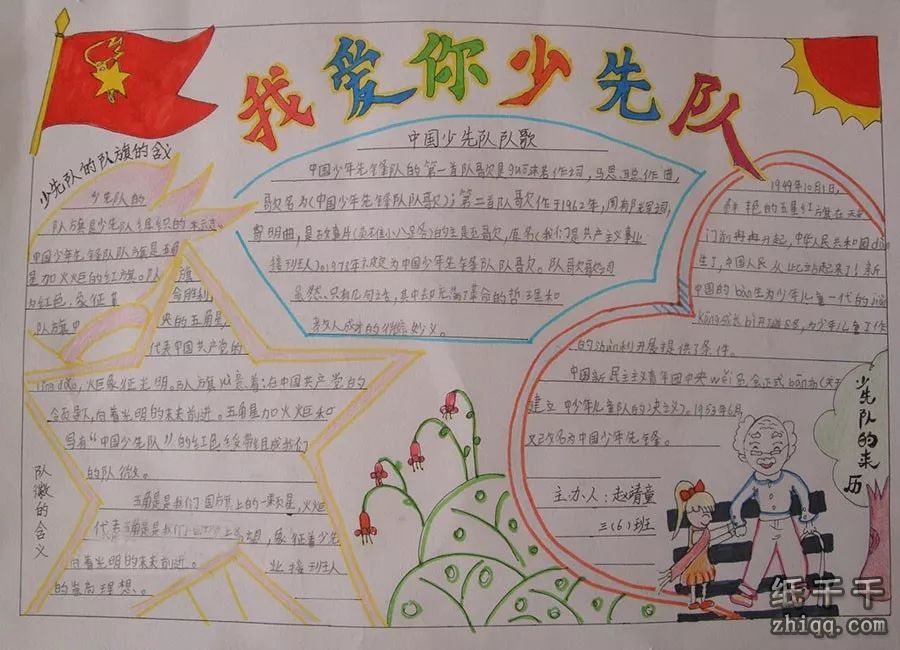 我爱你少先队
少先队的队旗的含义
少先队的
队旗是少先队组织的标志。
中国少年先锋队队旗是五角
星加火炬的红旗。队旗
为红色,象征革命胜利,
队旗中央的五角星,
代表中国共产党的
lǐng dǎo,火炬象征光明。队旗以意着:在中国共产党的
领导下,向着光明的未来前进。五角星加火炬和
写有“中国少先队”的红色绶带组成我们
的队徽。
队徽的含义
五角星是我们国旗上的一颗星,火炬
代表
望,象征着少先
向着光明的未来前进。
业接班人
的崇高理想。
中国少先队队歌
中国少年先锋队的第一首队歌是郭沫若作词,马思聪作曲,
歌名为《中国少年先锋队队歌》;第二首队歌作于1962年,周郁辉词,
寄明曲,是故事片《英雄小八路》的主题歌,原名《我们是共产主义事业
接班人》1978年
为中国少年先锋队队歌。队歌歌词
虽然只有几句话,其中却充满了革命的哲理和
教人成才的
妙义。
1949年10月1日,
鲜艳的五星红旗在天安
门前冉冉升起,中华人民共和国dàn
生了,中国人民从此站起来了!新
中国的dàn生为少年儿童一代的jiàn
kāng成长
,为少年儿童工作
的shùn利开展提供了条件。
中国新民主主义青年团中央wěi员会正式bān布《关于
建立中少年儿童队的决议》。1953年6月
又改名为中国少年先锋。
少先队的来历
主办人:赵靖童
三(6)班
纸千千
zhiqq.com